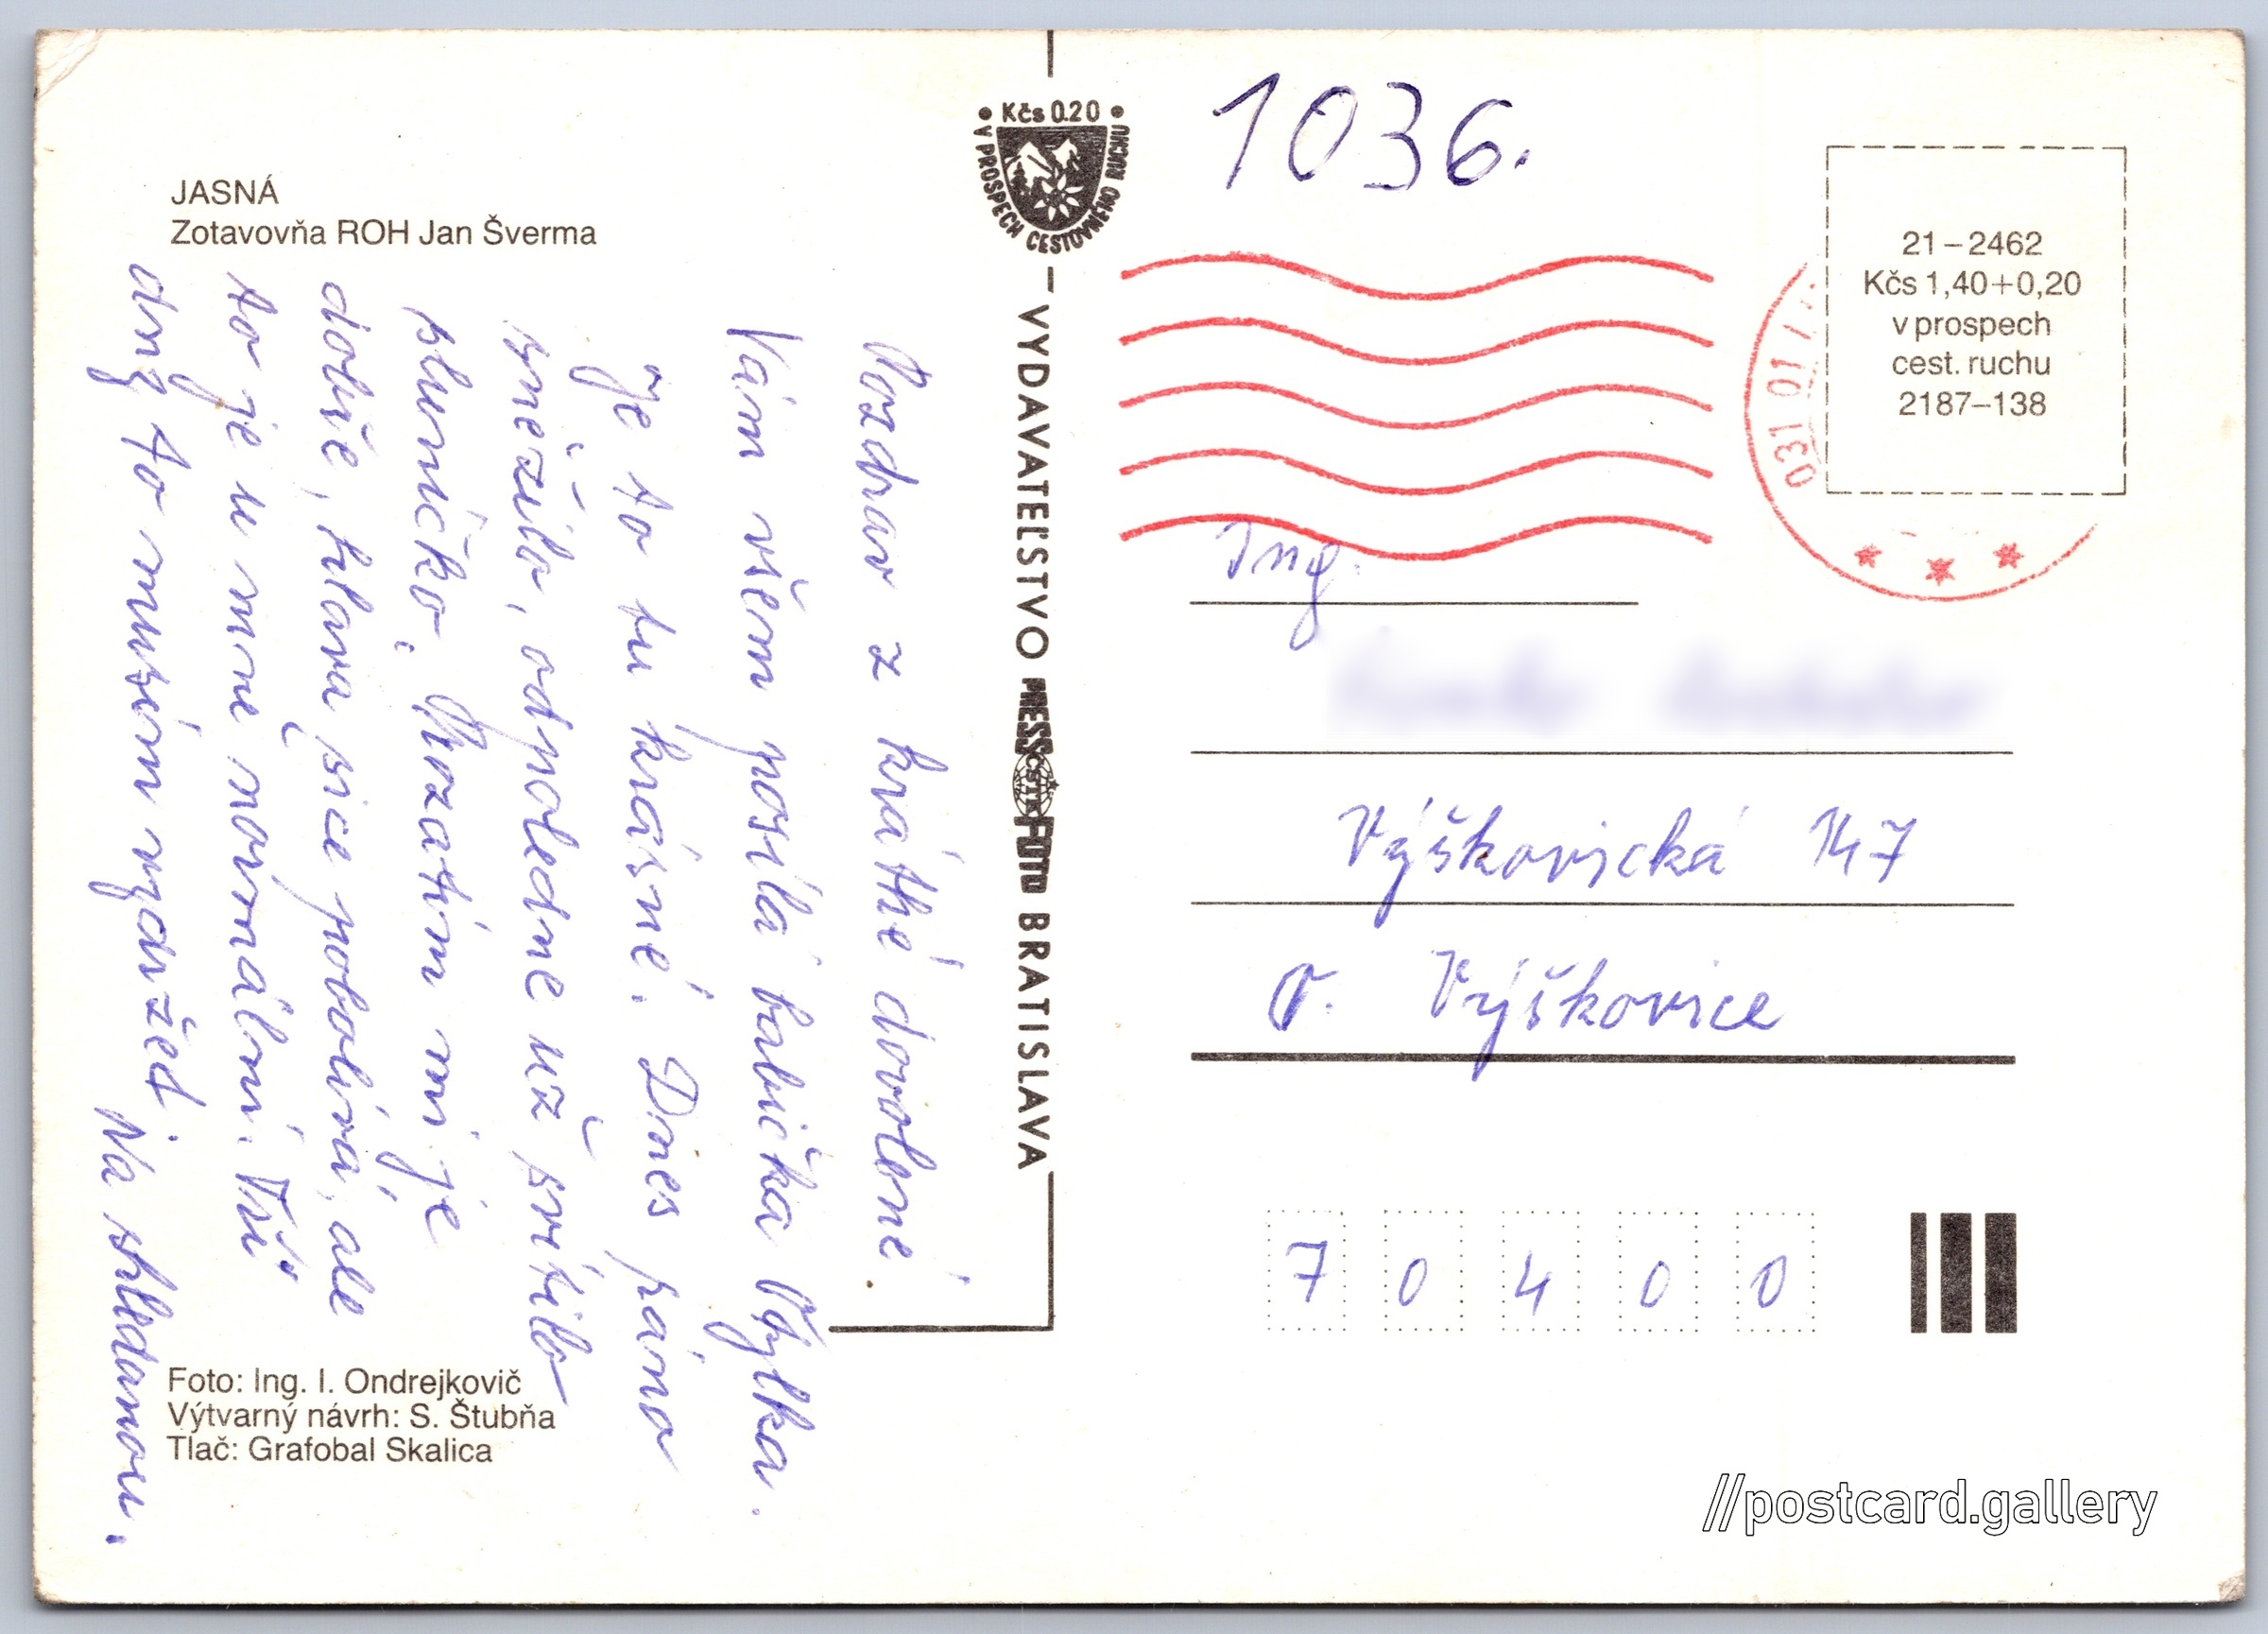 JASNÁ
Zotavovňa ROH Jan Šverma
Pozdrav z krátké dovolené
Vám všem posílá babička Vylka.
Je to tu krásné. Dnes ráno
sněžilo, odpoledne už svítilo
sluníčko. Prozatím mi je
dobře, hlava sice pobolívá, ale
to je u mne normální. Vší
dny to musím vydržet. Na shledanou.
Foto: Ing. I. Ondrejkovič
Výtvarný návrh: S. Štubňa
Tlač: Grafobal Skalica
• Kčs 0.20 •
V PROSPECH CESTOVNÉHO RUCHU
VYDAVATEĽSTVO PRESSFOTO BRATISLAVA
ČSTK
1036.
21–2462
Kčs 1,40+0,20
v prospech
cest. ruchu
2187–138
031 01
Ing.
Výškovická 147
O. Výškovice
7 0 4 0 0
//postcard.gallery